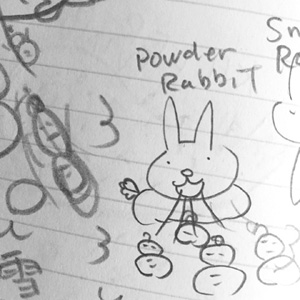 Powder
Rabbit
Sn
Ra
う
う
雪